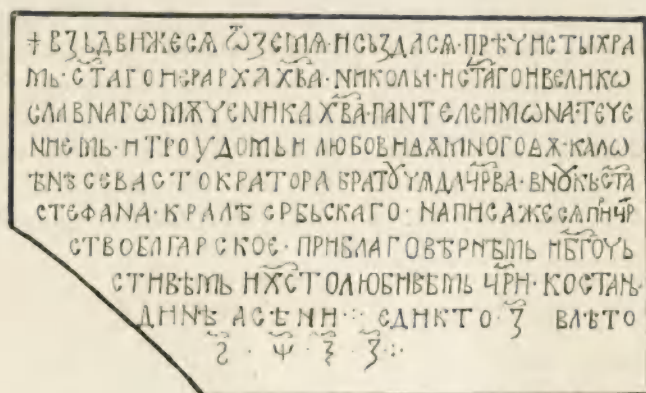 + ВЗЬДВИЖЕСѦ ѾЗЕМѦ·НСЬЗДАСѦ·ПРѢЧИСТЫХРА
МЬ·СТ҃АГОИЕРАРХАХ҃ВА·НИКОЛЫ·ИСТ҃АГОИВЕЛИКѠ
СЛАВНАГѠМѪЧЕНИКА Х҃ВА·ПАНТЕЛЕИМѠНА·ТЕЧЕ
НИЕМЬ·И ТРОУДОМЬИ ЛЮБОВИѪ
ѢНѢ СЕВАСТОКРАТОРА БРАТꙊЧѦДА
СТЕФАНА·КРАЛѢ СРЬБЬСКАГО·НАПИСАЖЕСѦ
СТВОБЛГАРСКОЕ·ПРИБЛАГОВѢРНѢМЬ ИБ҃ГОЧЬ
СТИВѢМЬ ИХ҃СТОЛЮБИВѢМЬ Ч҃РИ·КОСТАНЬ
ДИНѢ АСѢНИ ⁘ ЕДИКТО·З҃ ВЛѢТО
Ѕ҃·Ѱ҃·Ѯ҃·З҃⁘